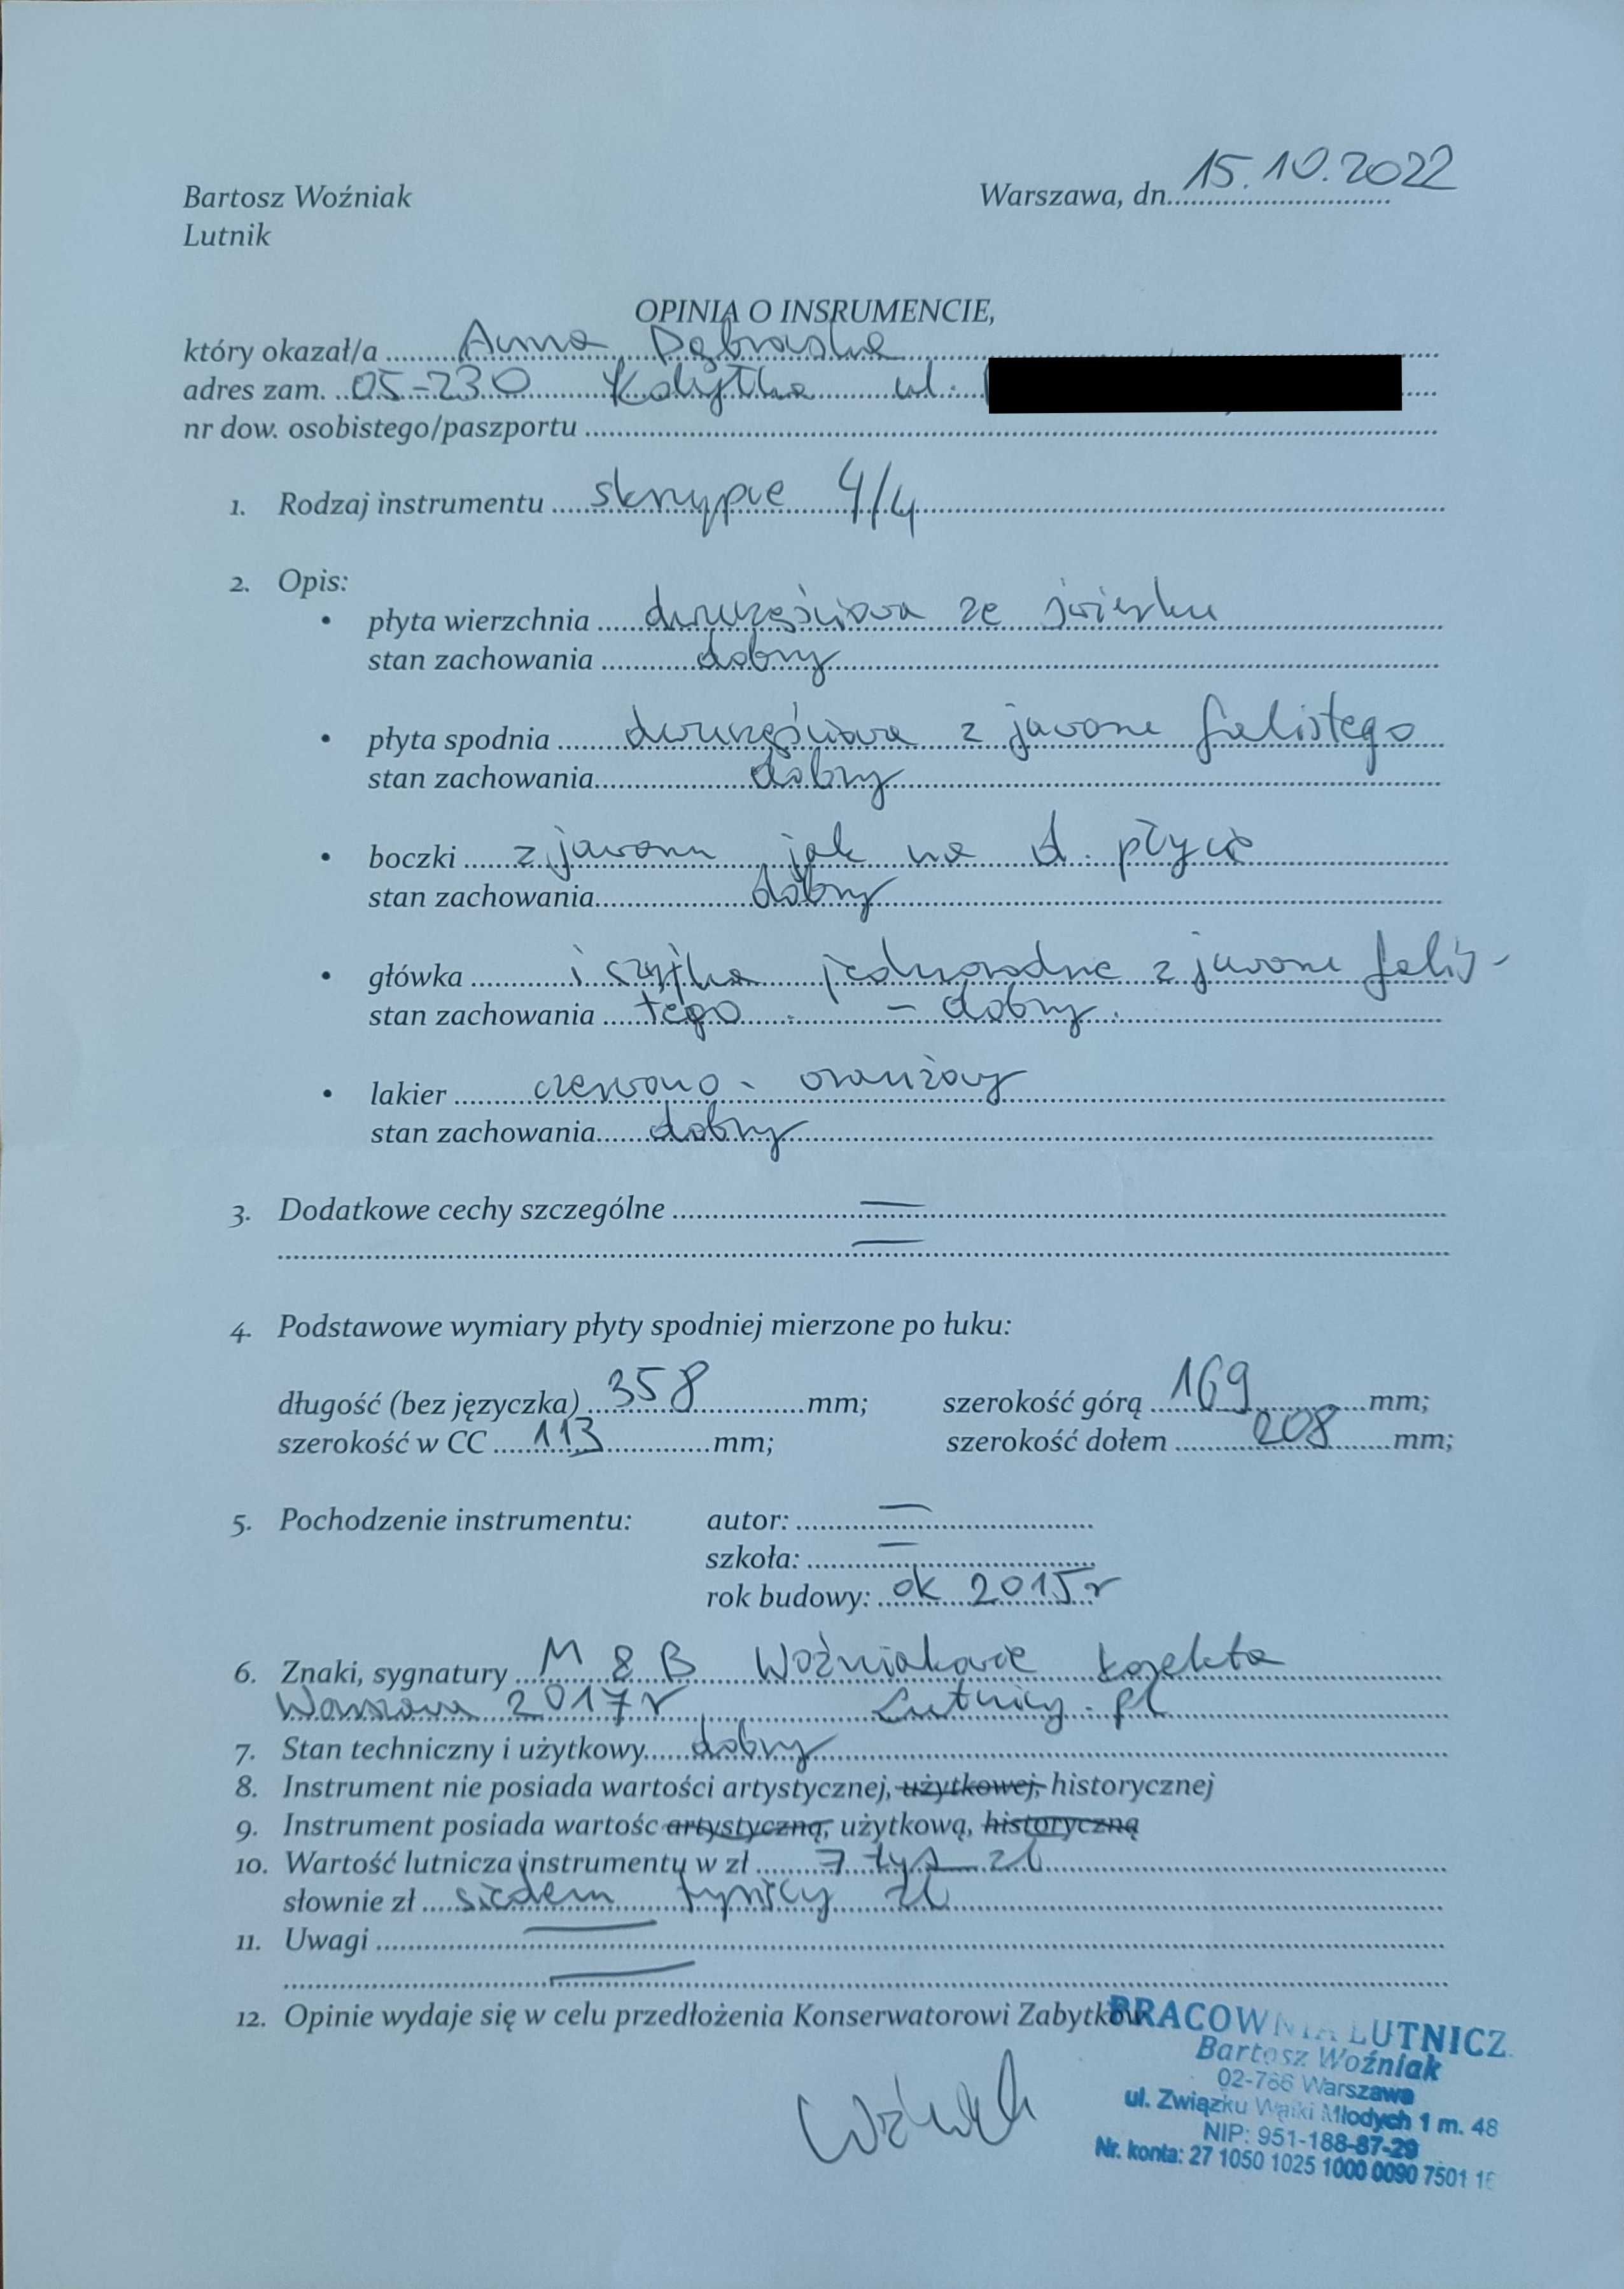 Bartosz Woźniak
Lutnik
Warszawa, dn. 15.10.2022
OPINIA O INSRUMENCIE,
który okazał/a Anna Dąbrowska
adres zam. 05-230 Kobyłka ul.
nr dow. osobistego/paszportu
1. Rodzaj instrumentu skrzypce 4/4
2. Opis:
• płyta wierzchnia dwuczęściowa ze świerku
stan zachowania dobry
• płyta spodnia dwuczęściowa z jawora falistego
stan zachowania dobry
• boczki z jaworu jak na d. płycie
stan zachowania dobry
• główka i szyjka jednorodne z jawora falis-
stan zachowania tego. - dobry.
• lakier czerwono - oranżowy
stan zachowania dobry
3. Dodatkowe cechy szczególne —
—
4. Podstawowe wymiary płyty spodniej mierzone po łuku:
długość (bez języczka) 358 mm; szerokość górą 169 mm;
szerokość w CC 113 mm; szerokość dołem 208 mm;
5. Pochodzenie instrumentu: autor: —
szkoła: —
rok budowy: ok 2015r
6. Znaki, sygnatury M & B Woźniakowie
Warszawa 2017r Lutnicy.pl
7. Stan techniczny i użytkowy dobry
8. Instrument nie posiada wartości artystycznej, użytkowej, historycznej
9. Instrument posiada wartośc artystyczną, użytkową, historyczną
10. Wartość lutnicza instrumentu w zł 7 tyś zł
słownie zł siedem tysięcy zł
11. Uwagi —
—
12. Opinie wydaje się w celu przedłożenia Konserwatorowi Zabytków
PRACOWNIA LUTNICZ
Bartosz Woźniak
02-786 Warszawa
ul. Związku Walki Młodych 1 m. 48
NIP: 951-188-87-29
Nr. konta: 27 1050 1025 1000 0090 7501 16
Woźniak